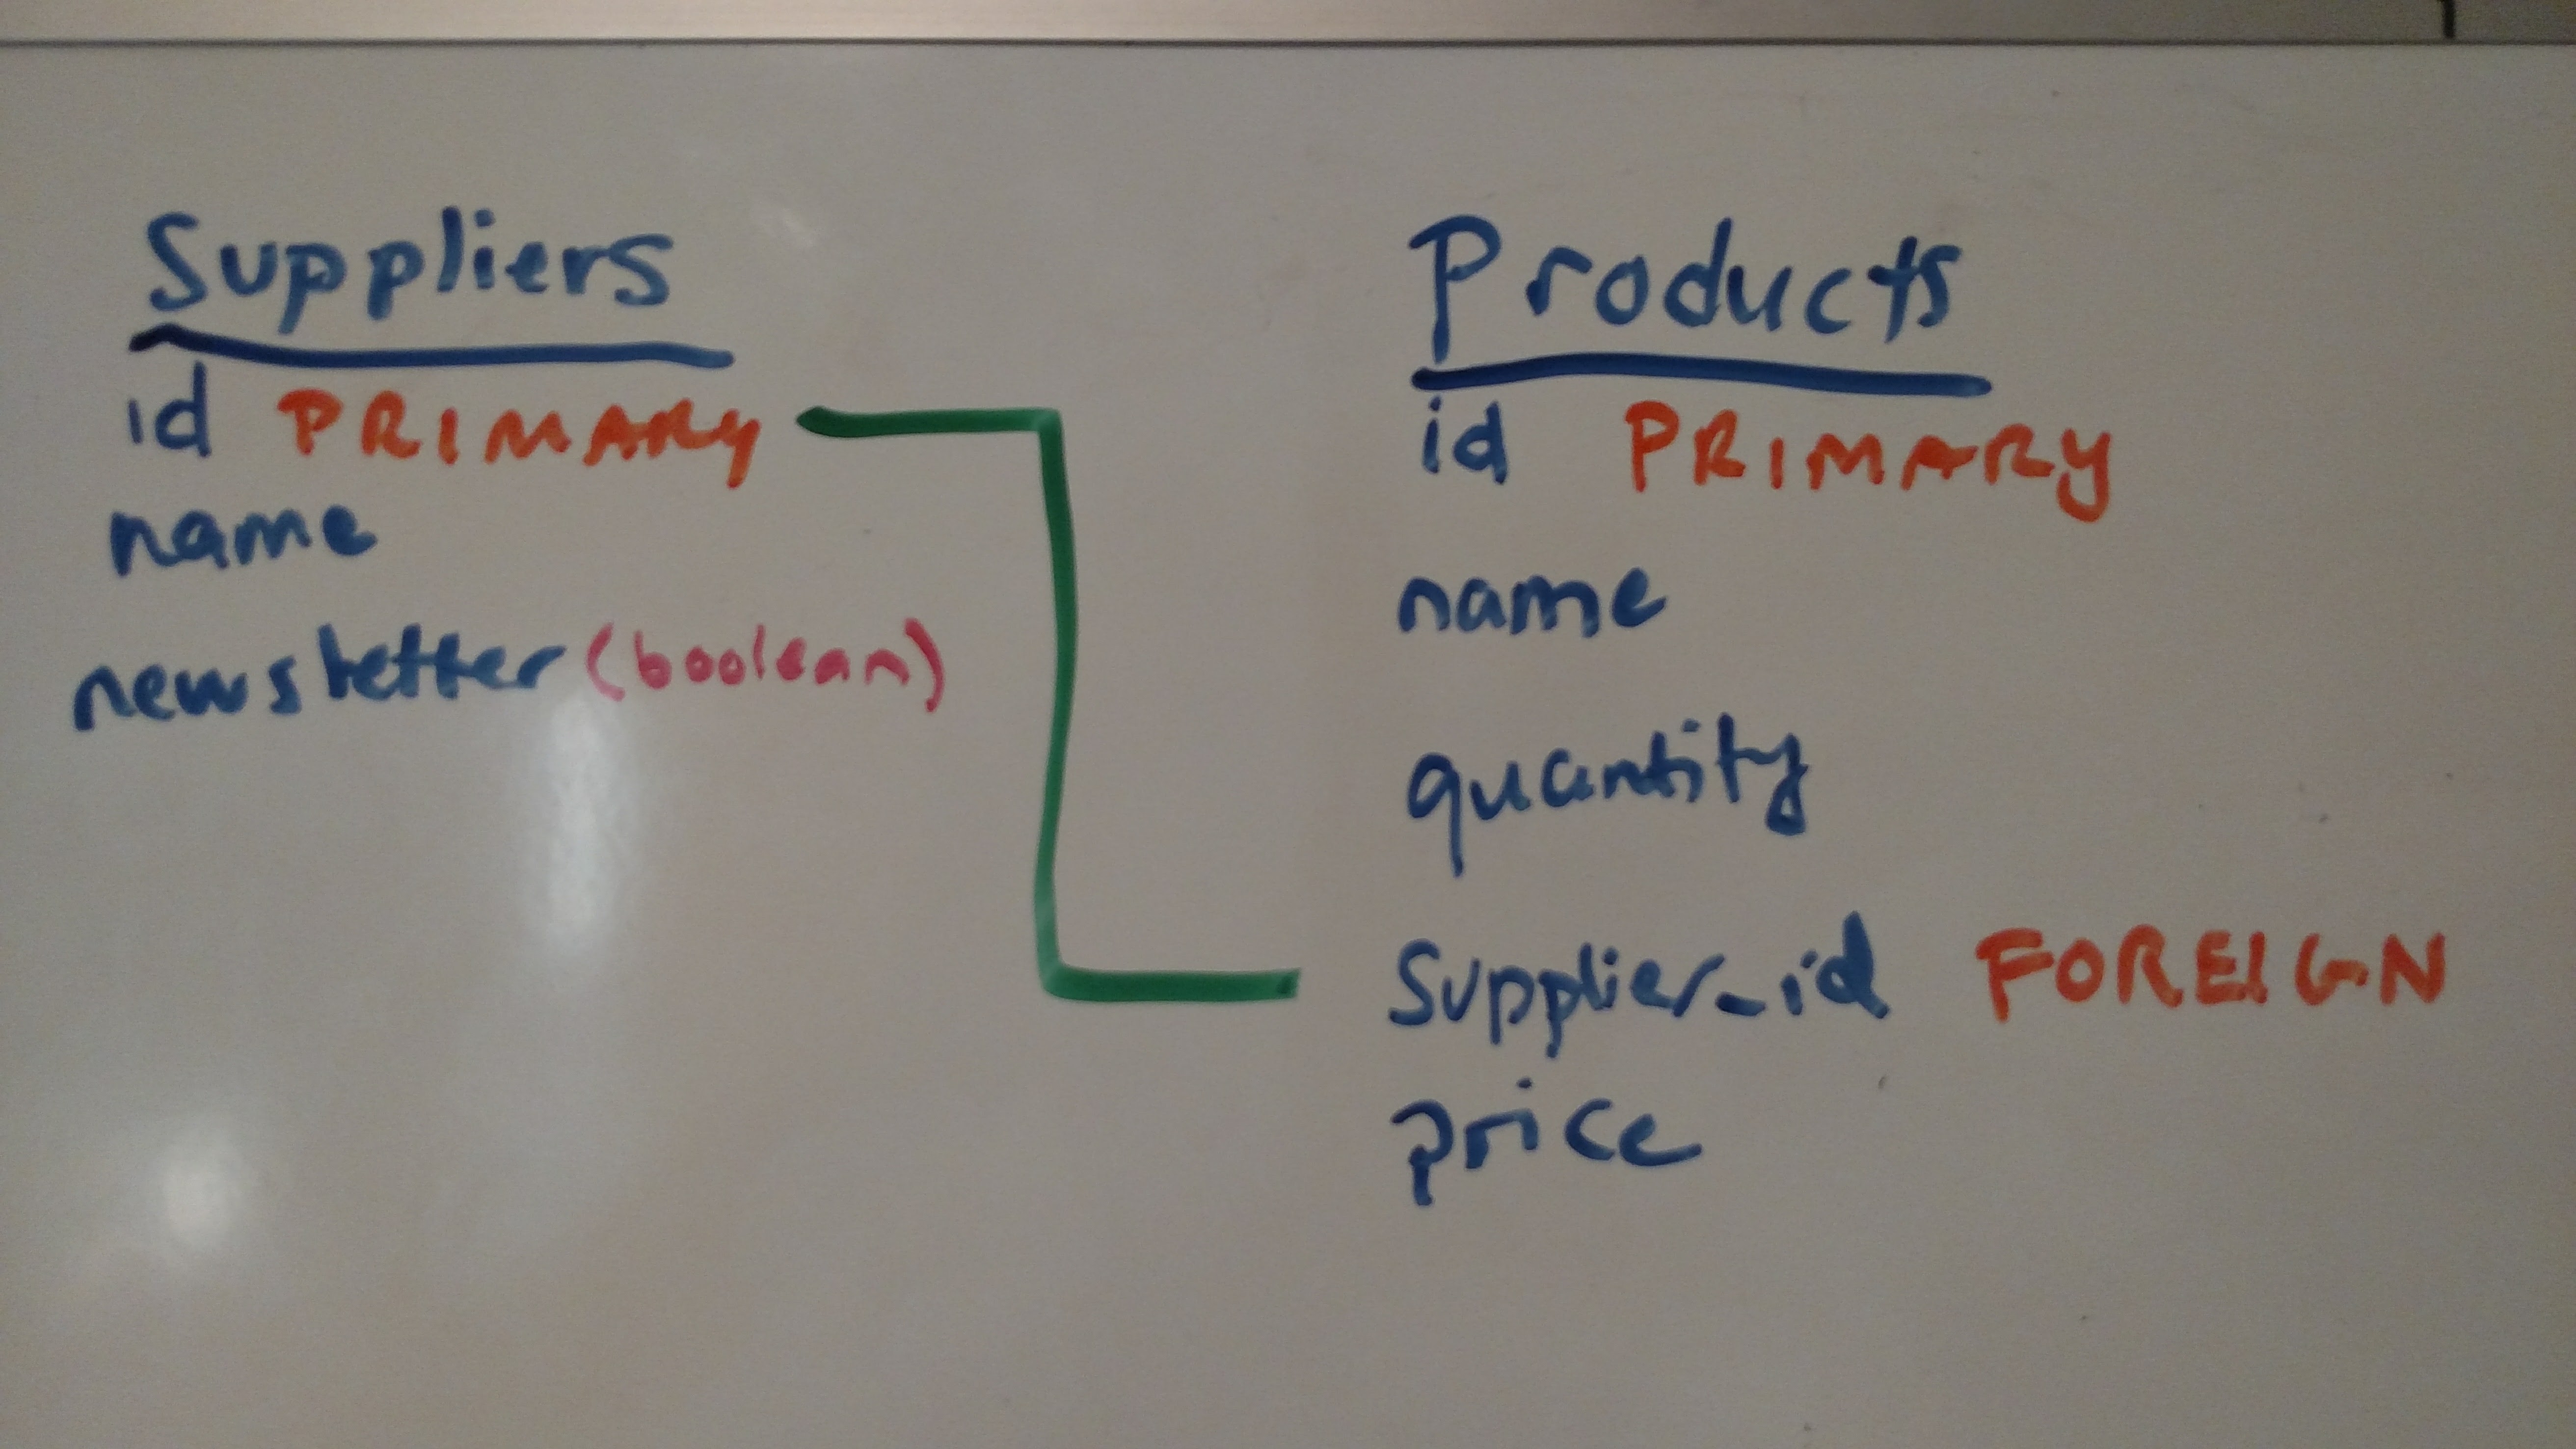 Suppliers
id PRIMARY
name
newsletter (boolean)
Products
id PRIMARY
name
quantity
Supplier_id FOREIGN
price